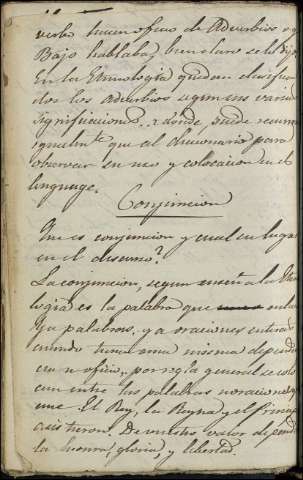 verbo hacen oficio de Adverbios v.g.
Bajo hablaba; bien claro se lo dije
En la Etimologia quedan clasifica
dos los Adverbios segun sus varias
significaciones. a donde, puede recurrir
igualmte que al diccionario para
observar su uso y colocacion en el
lenguage.
Conjuncion
Que es conjuncion y cual su lugar
en el discurso?
La conjuncion, segun enseña la Etimo
logia es la palabra que enlaza
ya palabras, ya oraciones entre si
cuando tienen una misma dependen
cia u oficio, por regla general se colo
can entre las palabras u oraciones que
une El Rey, la Reyna y el Principe
asistieron. De nuestro valor depende
la honra, gloria y libertad.